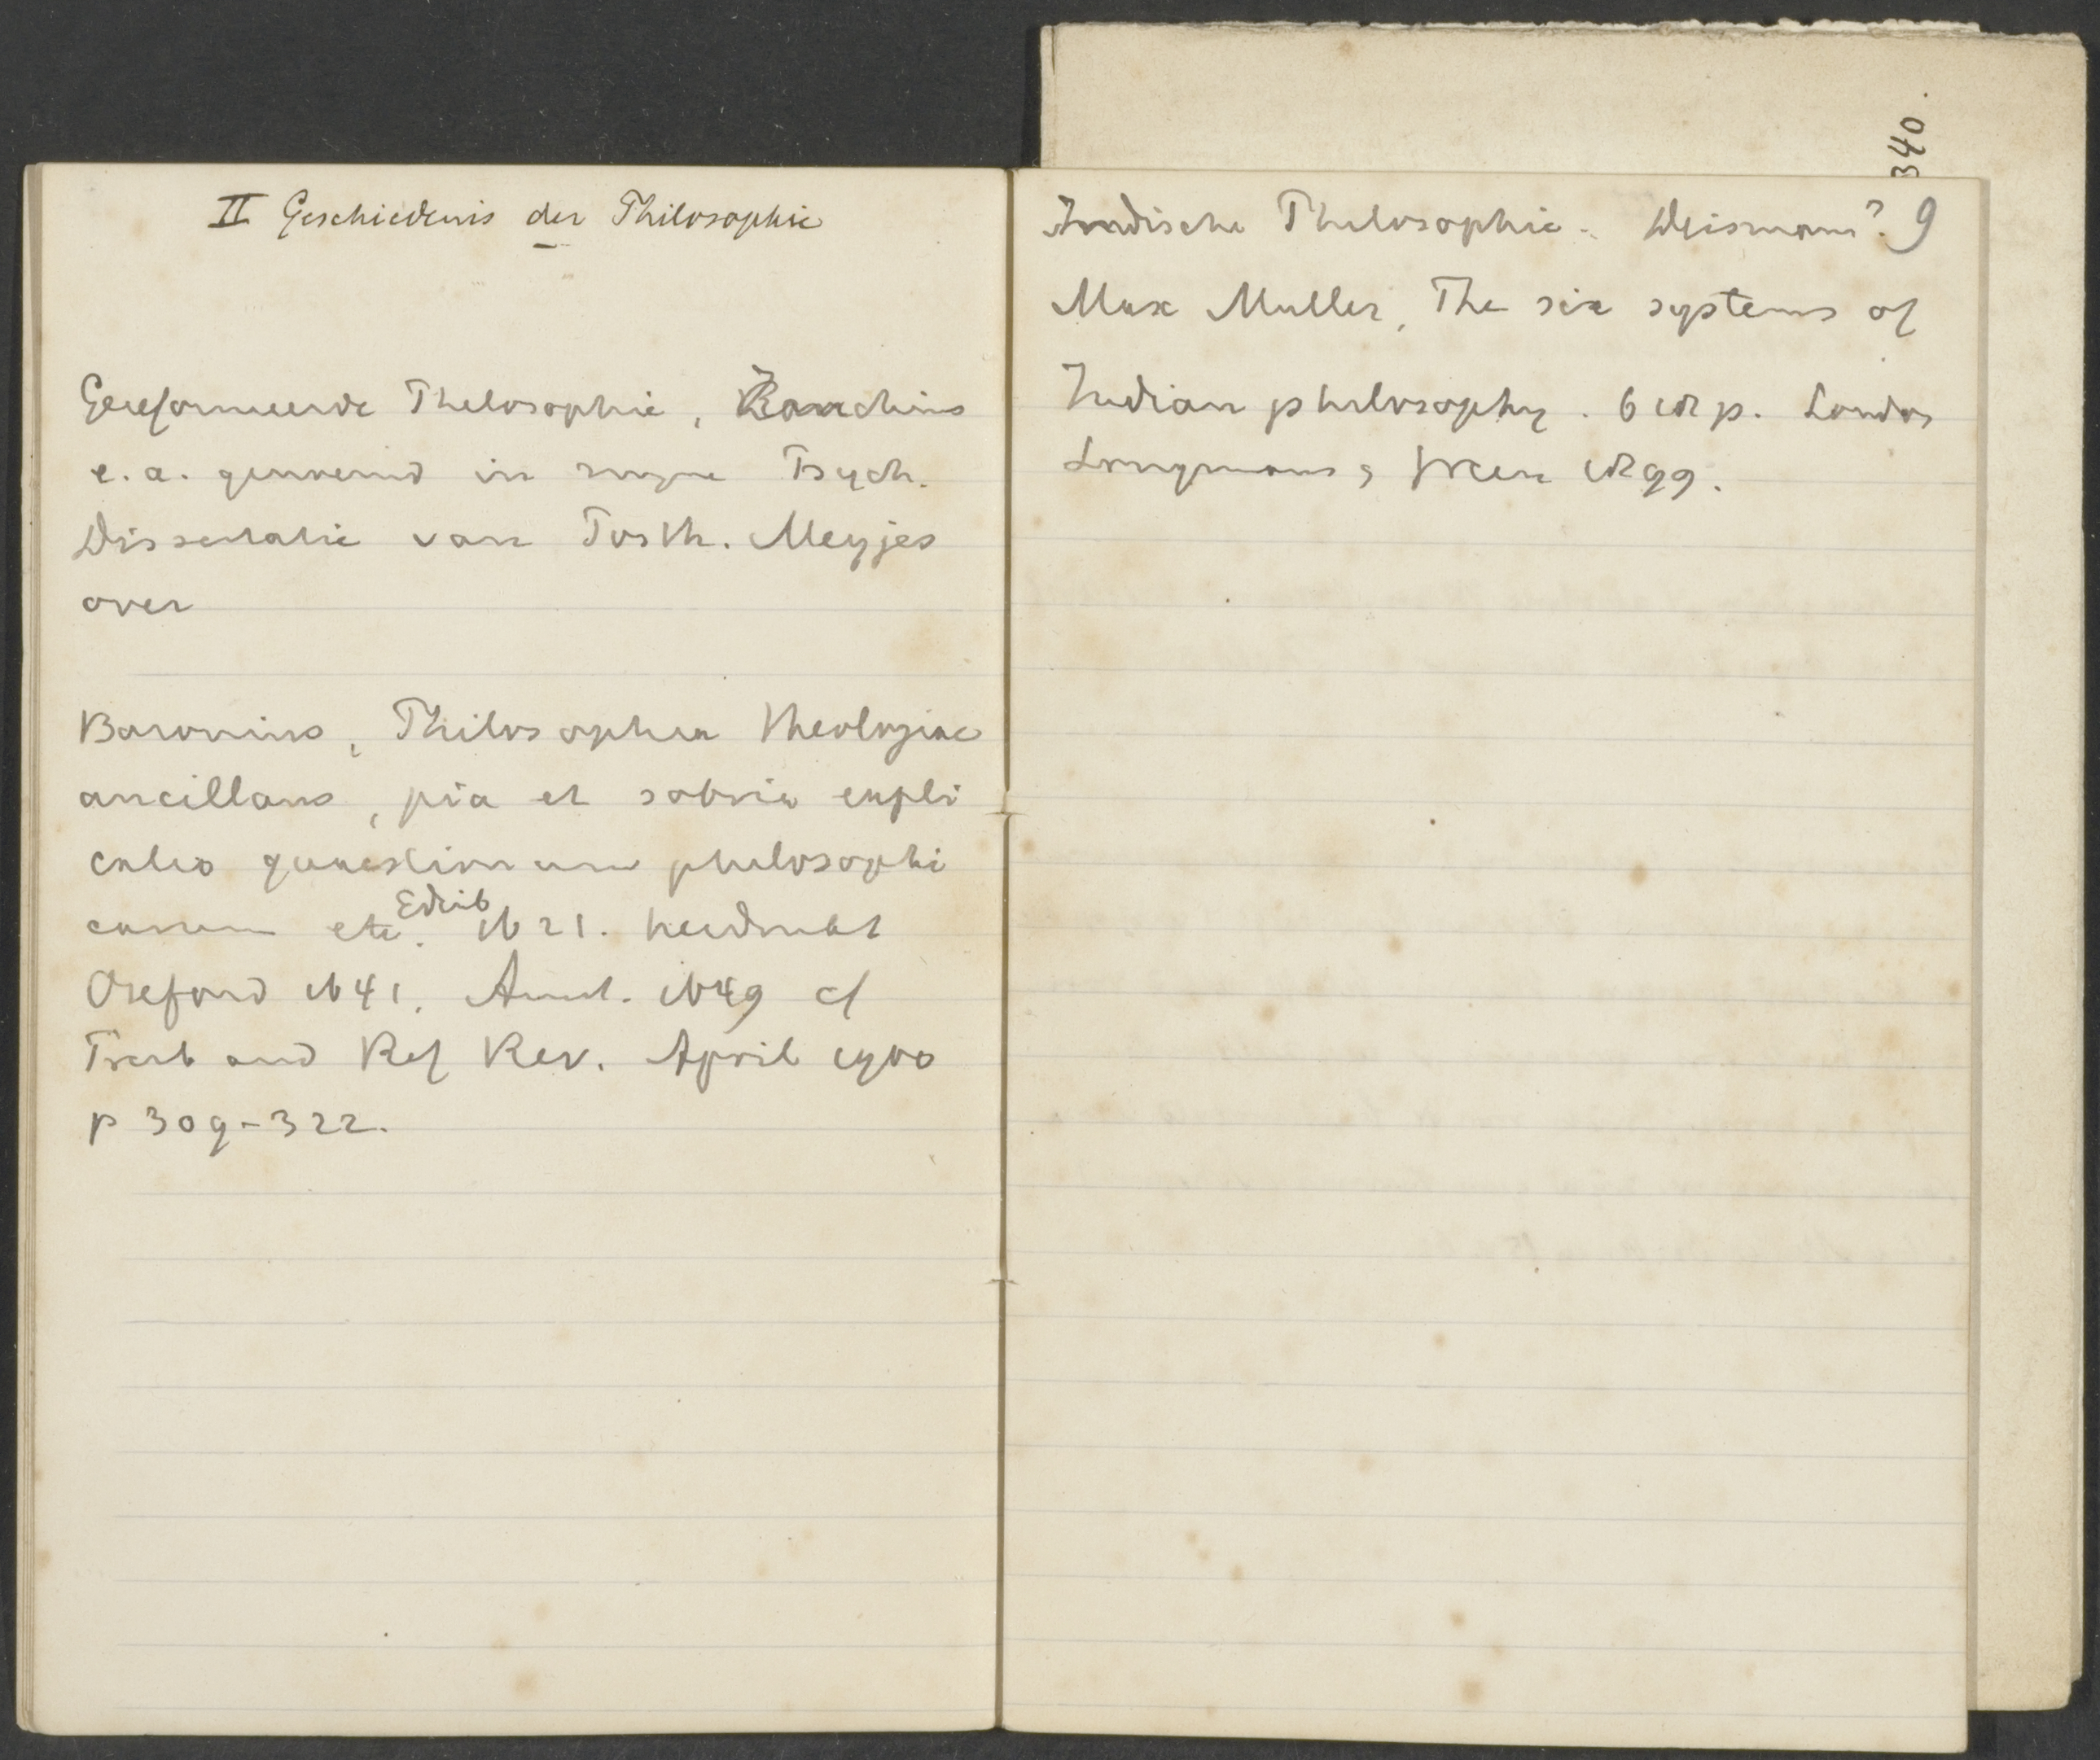 II Geschiedenis der Philosophie
Gereformeerde Philosophie, Zanchius
e.a. genoemd in mijne Psych.
Dissertatie van Posth. Meyjes
over
Baronius, Philosophia theologiae
ancillans, pia et sobria expli
catio quaestionum philosophi
carum etc. Edinb 1621. herdrukt
Oxford 1641. Amst. 1649 cf
Presb and Ref Rev. April 1900
p 309-322.
340.
Indische Philosophie. ? 9
Max Muller, The six systems of
Indian philosophy. 618 p. London
Longmans, Green 1899.